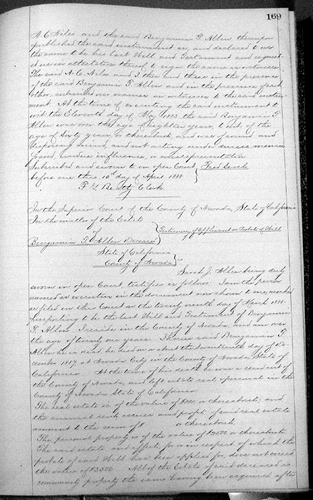 169
A. C. Niles and the said Benjamin F. Allen thereupon
published the said instrument as, and declared to us
the same to be his last Will and Testament and request-
ed us in attestation thereof, to sign the same as witnesses.
The said A. C. Niles and I then and there in the presence
of the said Benjamin F. Allen and in the presence of each
other, subscribed our names as witnesses to the said instru-
ment. At the time of executing the said instrument to
wit the Eleventh day of May 1883 the said Benjamin F.
Allen was over the age of Eighteen years, to wit of the
age of Sixty years or thereabouts, and was of sound and
disposing mind, and not acting under duress menace
fraud, undue influence, or misrepresentation
Subscribed and sworn to in open Court
before me this 10th day of April 1888
Clerk
In the Superior Court of the County of Nevada, State of California
In the matter of the Estate
of
Benjamin F. Allen Deceased
Testimony of Applicant on Probate of Will
State of California
County of Nevada
Sarah J. Allen being duly
sworn in open Court testifies as follows. I am the person
named as executrix in the document now shown to me, marked
as filed in this Court on the twenty seventh day of March 1888
purporting to be the last Will and Testament of Benjamin
F. Allen. I reside in the County of Nevada, and am over
the age of twenty one years. The said Benjamin F.
Allen is dead he died on or about the day of De-
cember 1887 at Nevada City in the County of Nevada, State of
California. At the time of his death he was a resident of
the County of Nevada and left estate real & personal in the
County of Nevada State of California
The real estate is of the value of or thereabouts, and
the annual rents, issues and profits of said real estate
amount to the sum of $ or thereabouts
The personal property is of the value of or thereabouts
The said estate and effects for or in respect of which the
probate of said Will has been applied for does not exceed
the value of All of the Estate of said deceased is
community property the same having been acquired after